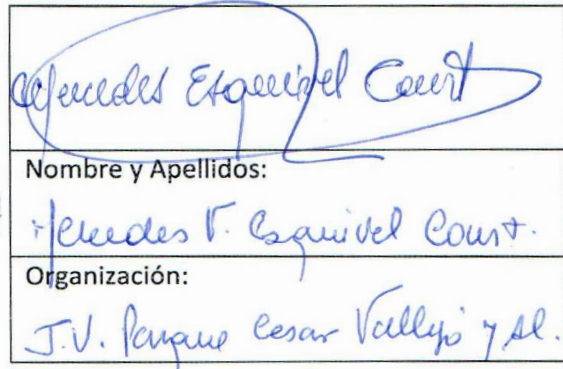 Mercedes Esquivel Court
Nombre y Apellidos:
Mercedes V. Esquivel Court.
Organización:
J.V. Parque Cesar Vallejo y Al.